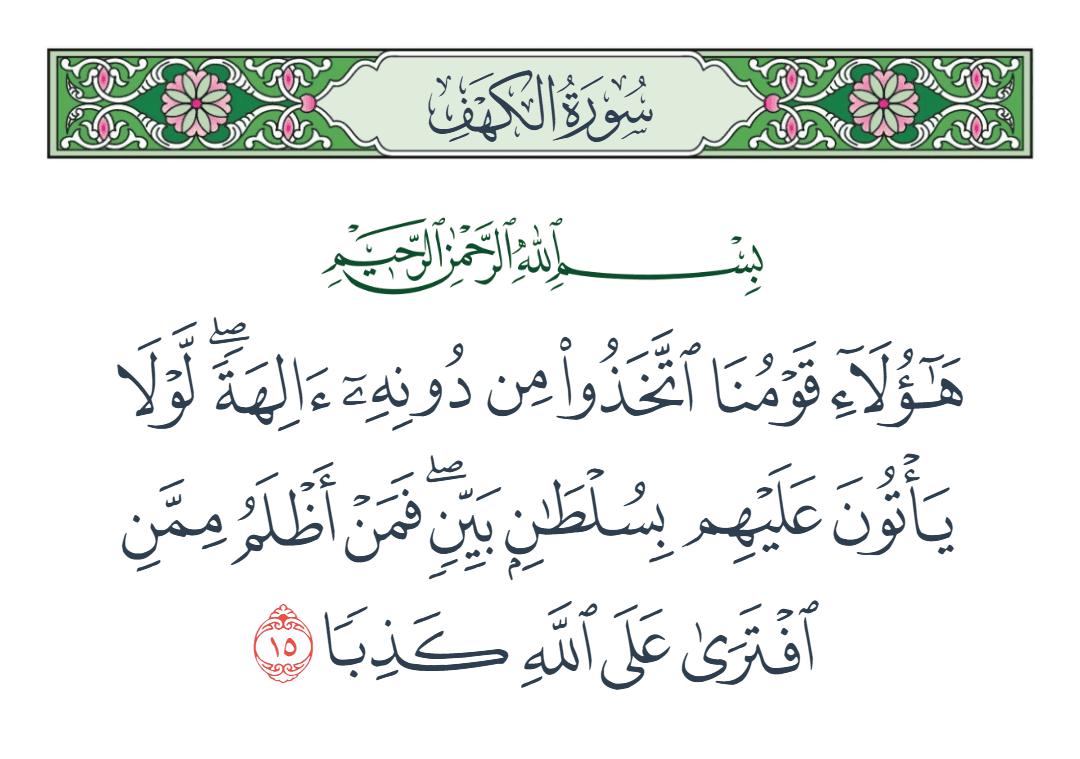 سُورَةُ الْكَهْفِ
بِسْمِ ٱللَّهِ ٱلرَّحْمَٰنِ ٱلرَّحِيمِ
هَـٰٓؤُلَآءِ قَوْمُنَا ٱتَّخَذُوا۟ مِن دُونِهِۦٓ ءَالِهَةً ۖ لَّوْلَا
يَأْتُونَ عَلَيْهِم بِسُلْطَـٰنٍۭ بَيِّنٍ ۖ فَمَنْ أَظْلَمُ مِمَّنِ
ٱفْتَرَىٰ عَلَى ٱللَّهِ كَذِبًا ١٥